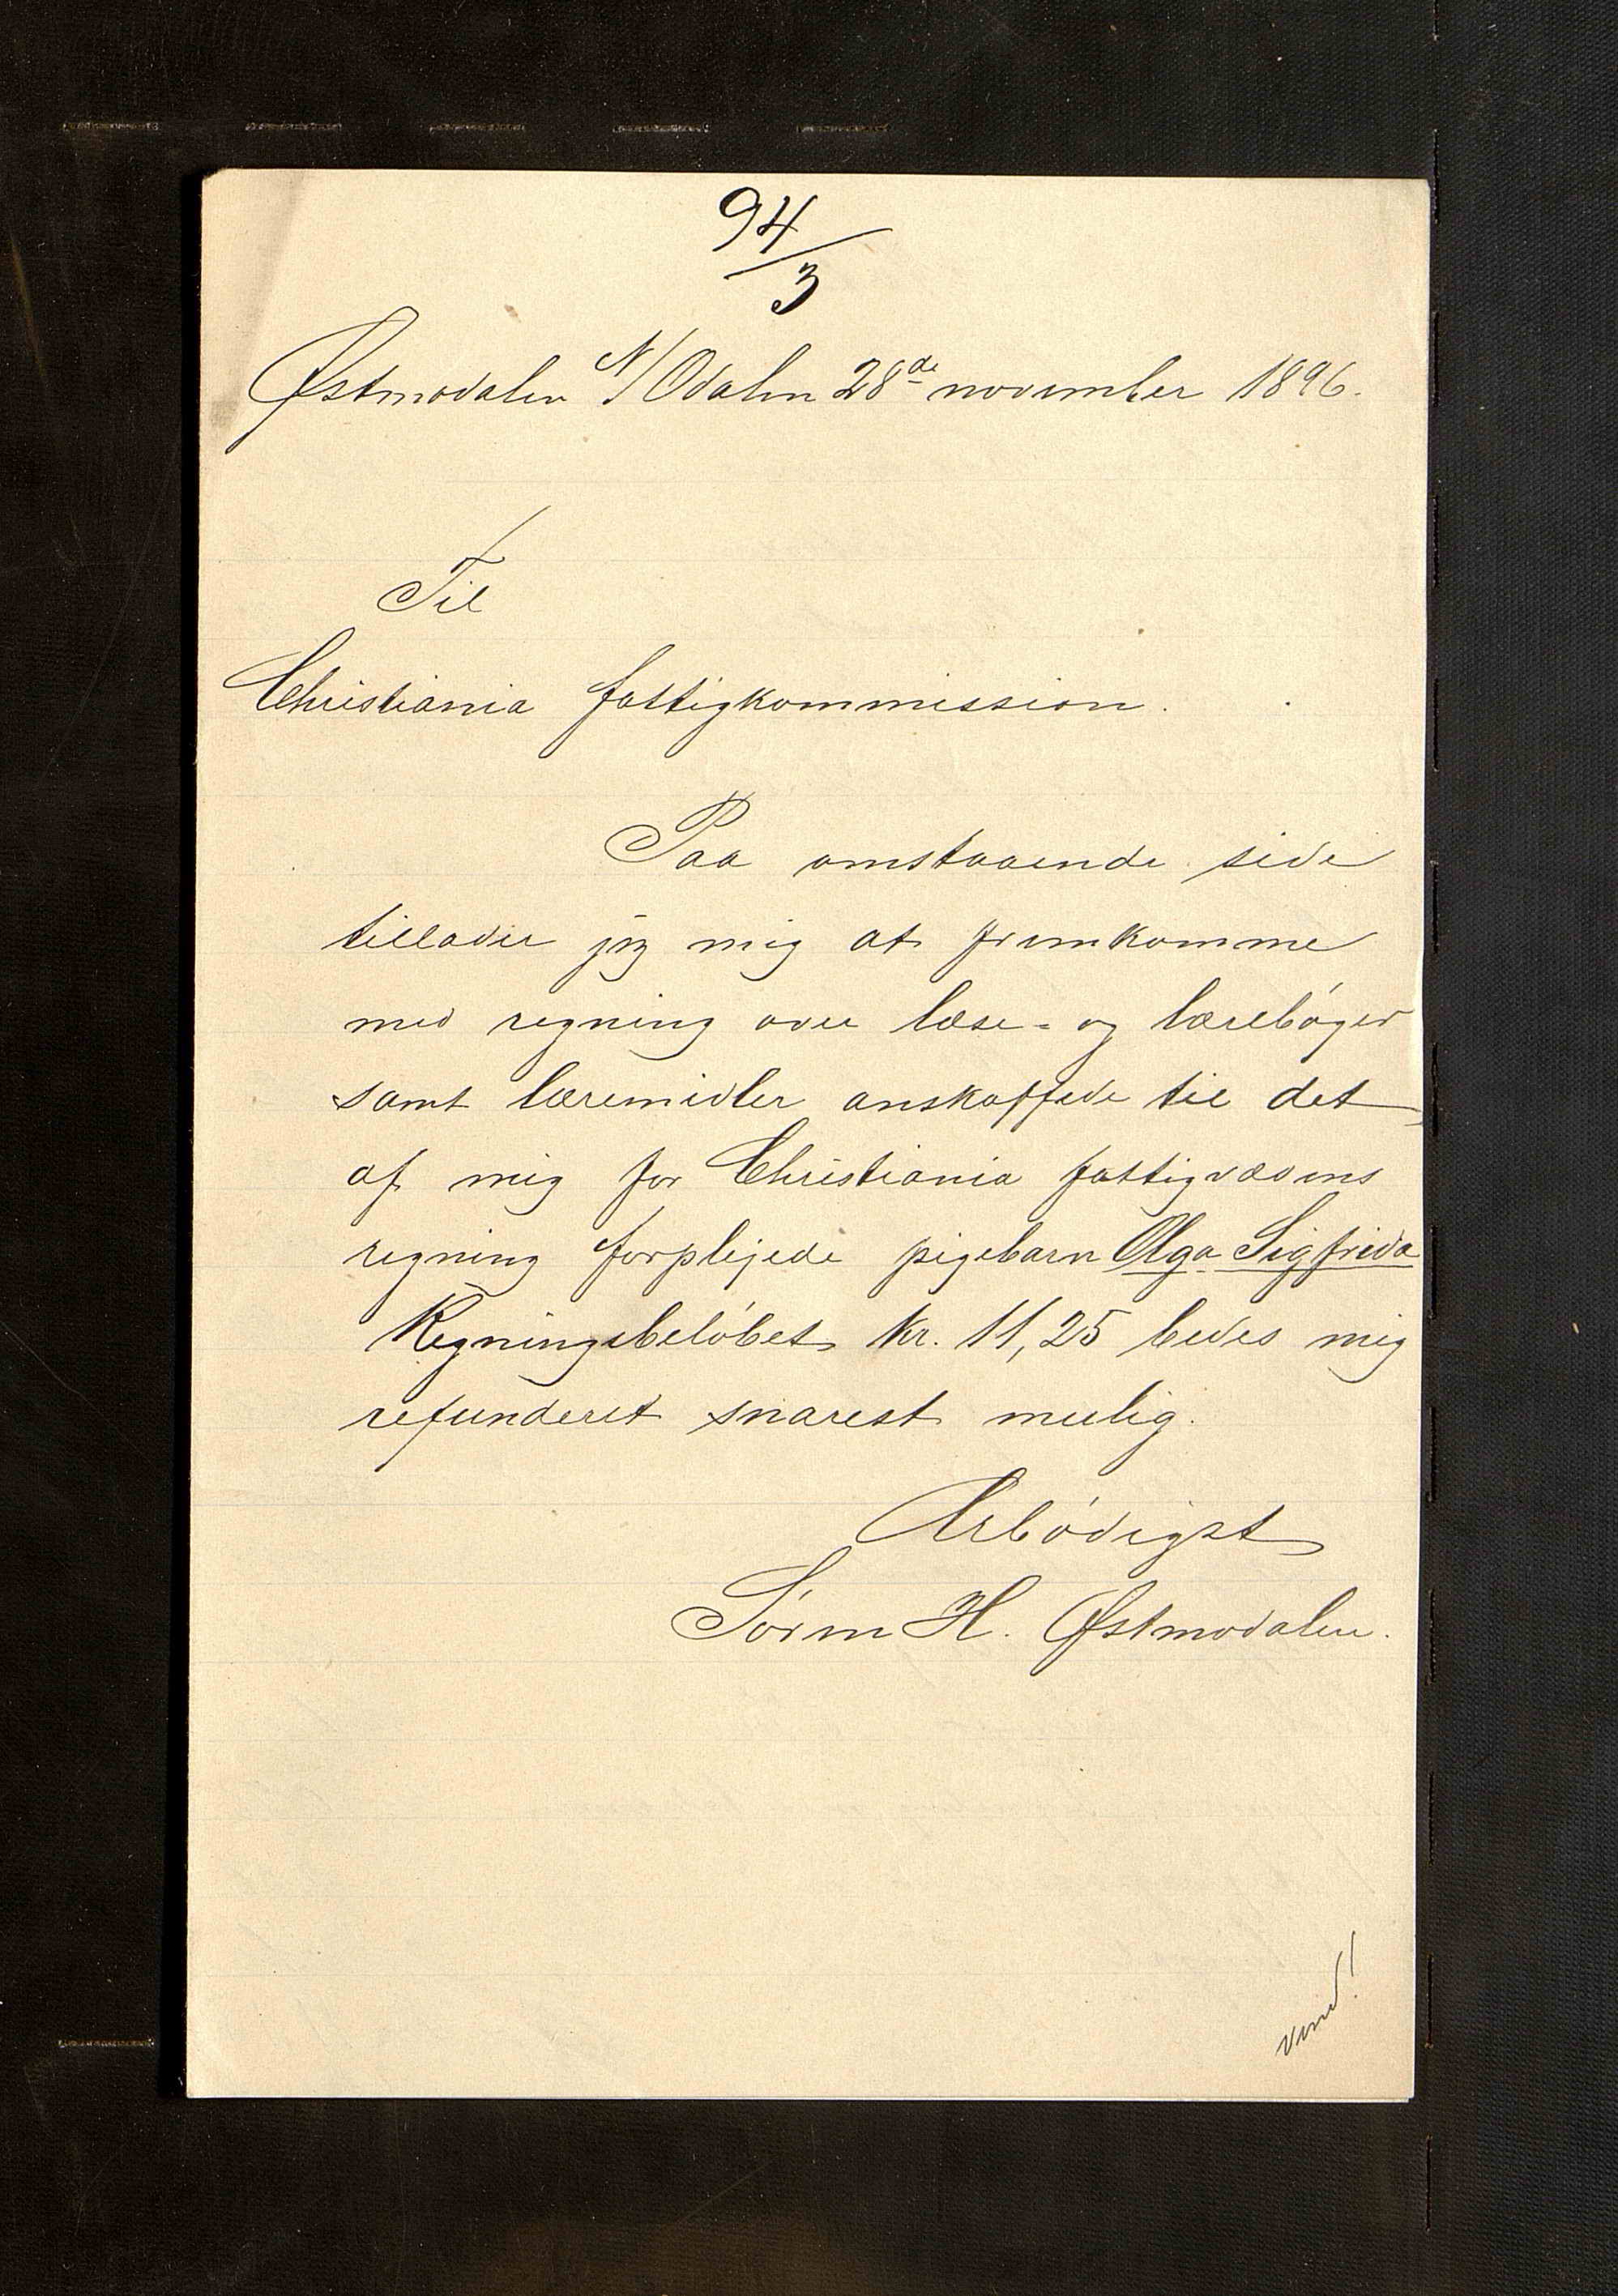 94/3
Østmodalen N/Odalen 28de november 1896.
Til
Christiania fattigkommission.
Paa omstaaende side
tillader jeg mig at fremkomme
med regning over læse- og lærebøger
samt læremidler anskaffede til det
af mig for Christiania fattigvæsens
regning forplejede pigebarn Olga Sigfrida
Regningsbeløbet kr. 11,25 bedes mig
refunderet snarest mulig.
Ærbødigst
Søren H. Østmodalen.
vend!